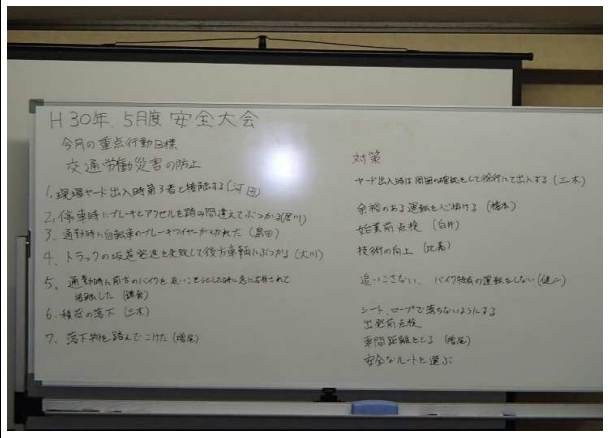 H30年、5月度 安全大会
今月の重点行動目標
交通労働災害の防止
1、現場ヤード出入時第3者と接触する(河田)
2、停車時にブレーキとアクセルを踏み間違えてぶつかる
3、通勤時に自転車のブレーキワイヤーが切れた
4、トラックの坂道発進を失敗して後方車輌にぶつかる(大川)
5、通勤時に前方のバイクを追いこそうとした時に急に右折されて
6、積荷の落下(三木)
7、落下物を踏んでこけた(増尾)
対策
ヤード出入時は周囲の確認をして徐行にて出入する(三木)
余裕のある運転を心掛ける(橋本)
始業前点検(白井)
技術の向上(比嘉)
追いこさない、バイク特有の運転をしない
シート、ロープで落ちないようにする
出発前点検
車間距離をとる(増尾)
安全なルートを選ぶ